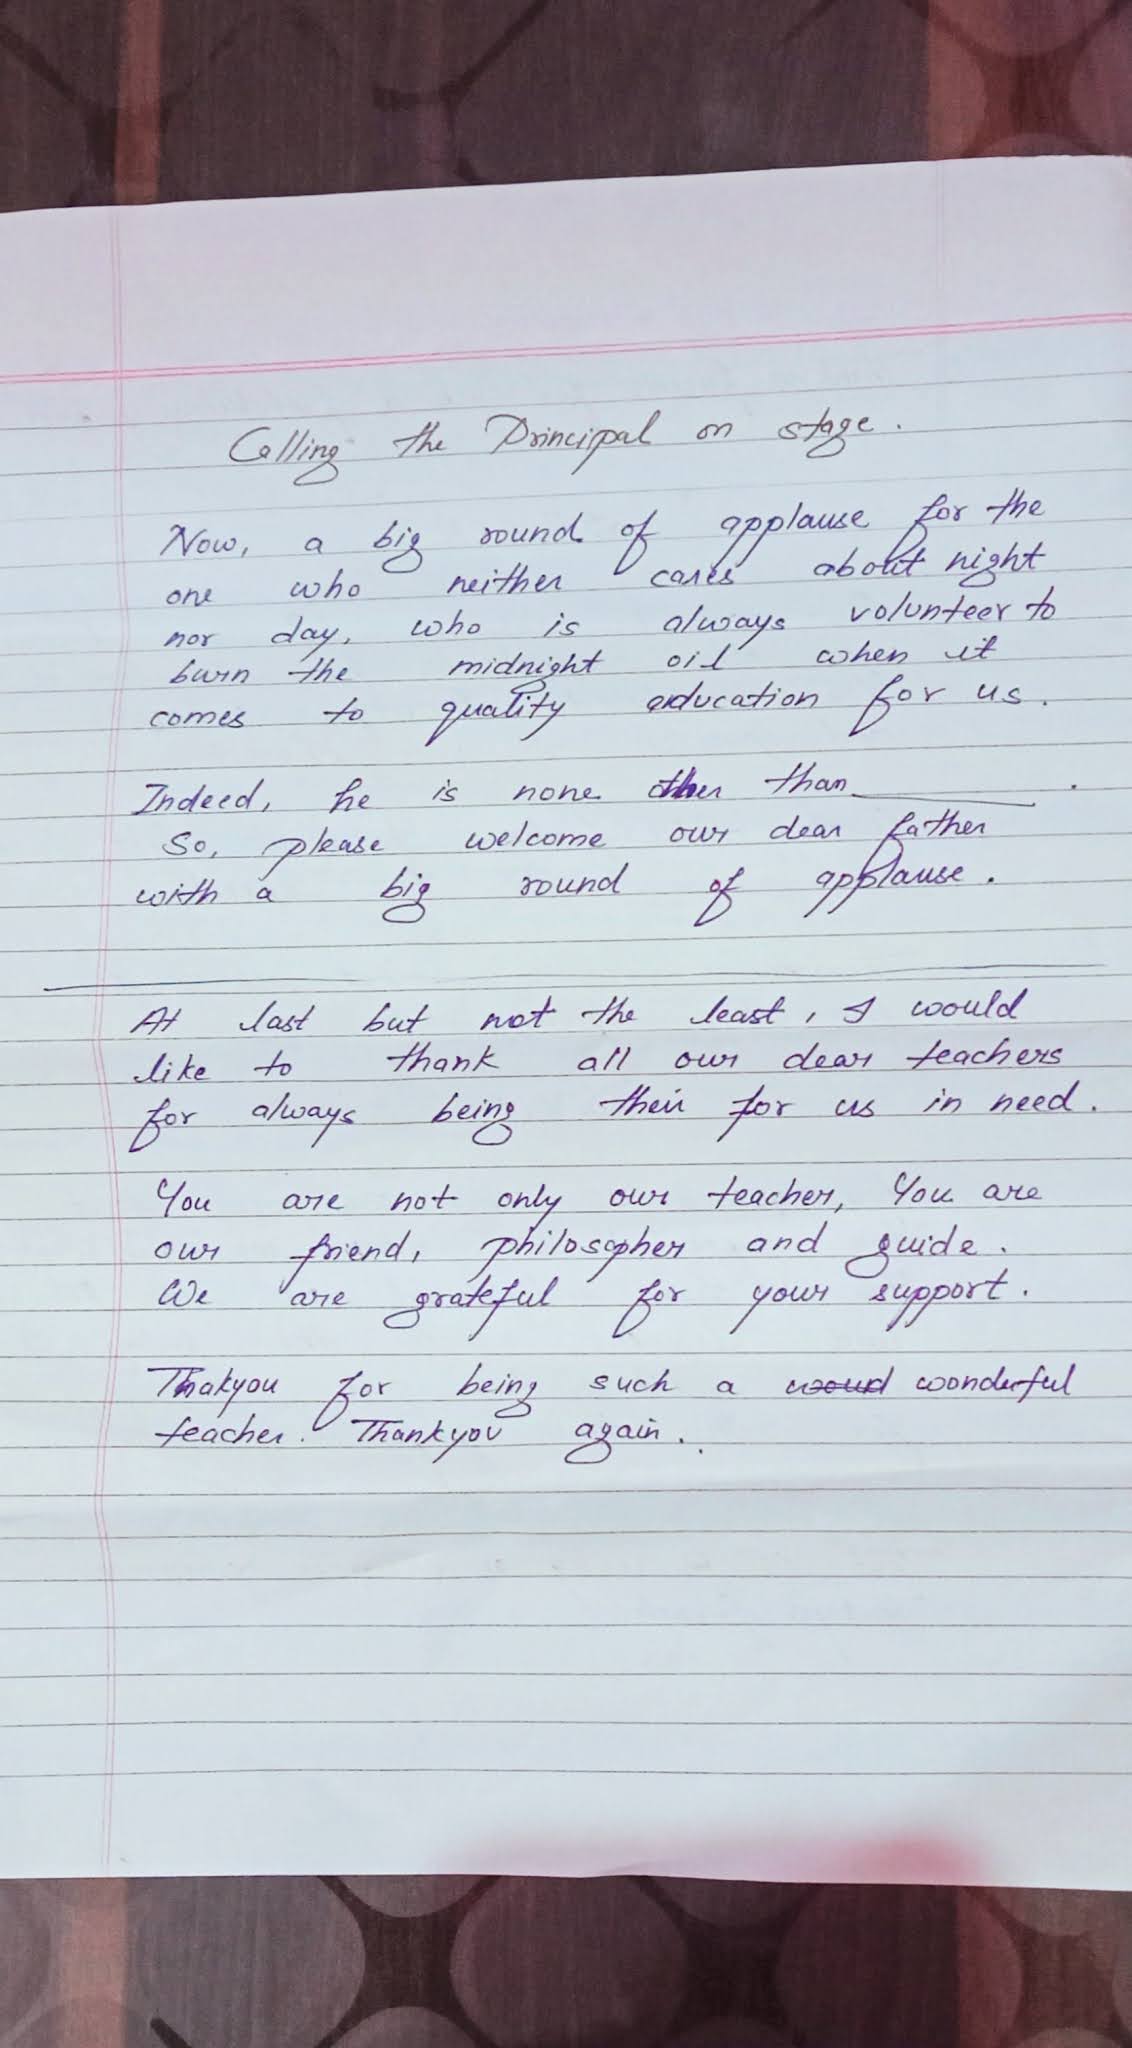 Calling the Principal on stage.
Now, a big round of applause for the
one who neither cares about night
nor day, who is always volunteer to
burn the midnight oil when it
comes to quality education for us.
Indeed, he is none other than ________.
So, please welcome our dear father
with a big round of applause.
At last but not the least, I would
like to thank all our dear teachers
for always being their for us in need.
You are not only our teacher, You are
our friend, philosopher and guide.
We are grateful for your support.
Thakyou for being such a woonderful
teacher. Thankyou again..